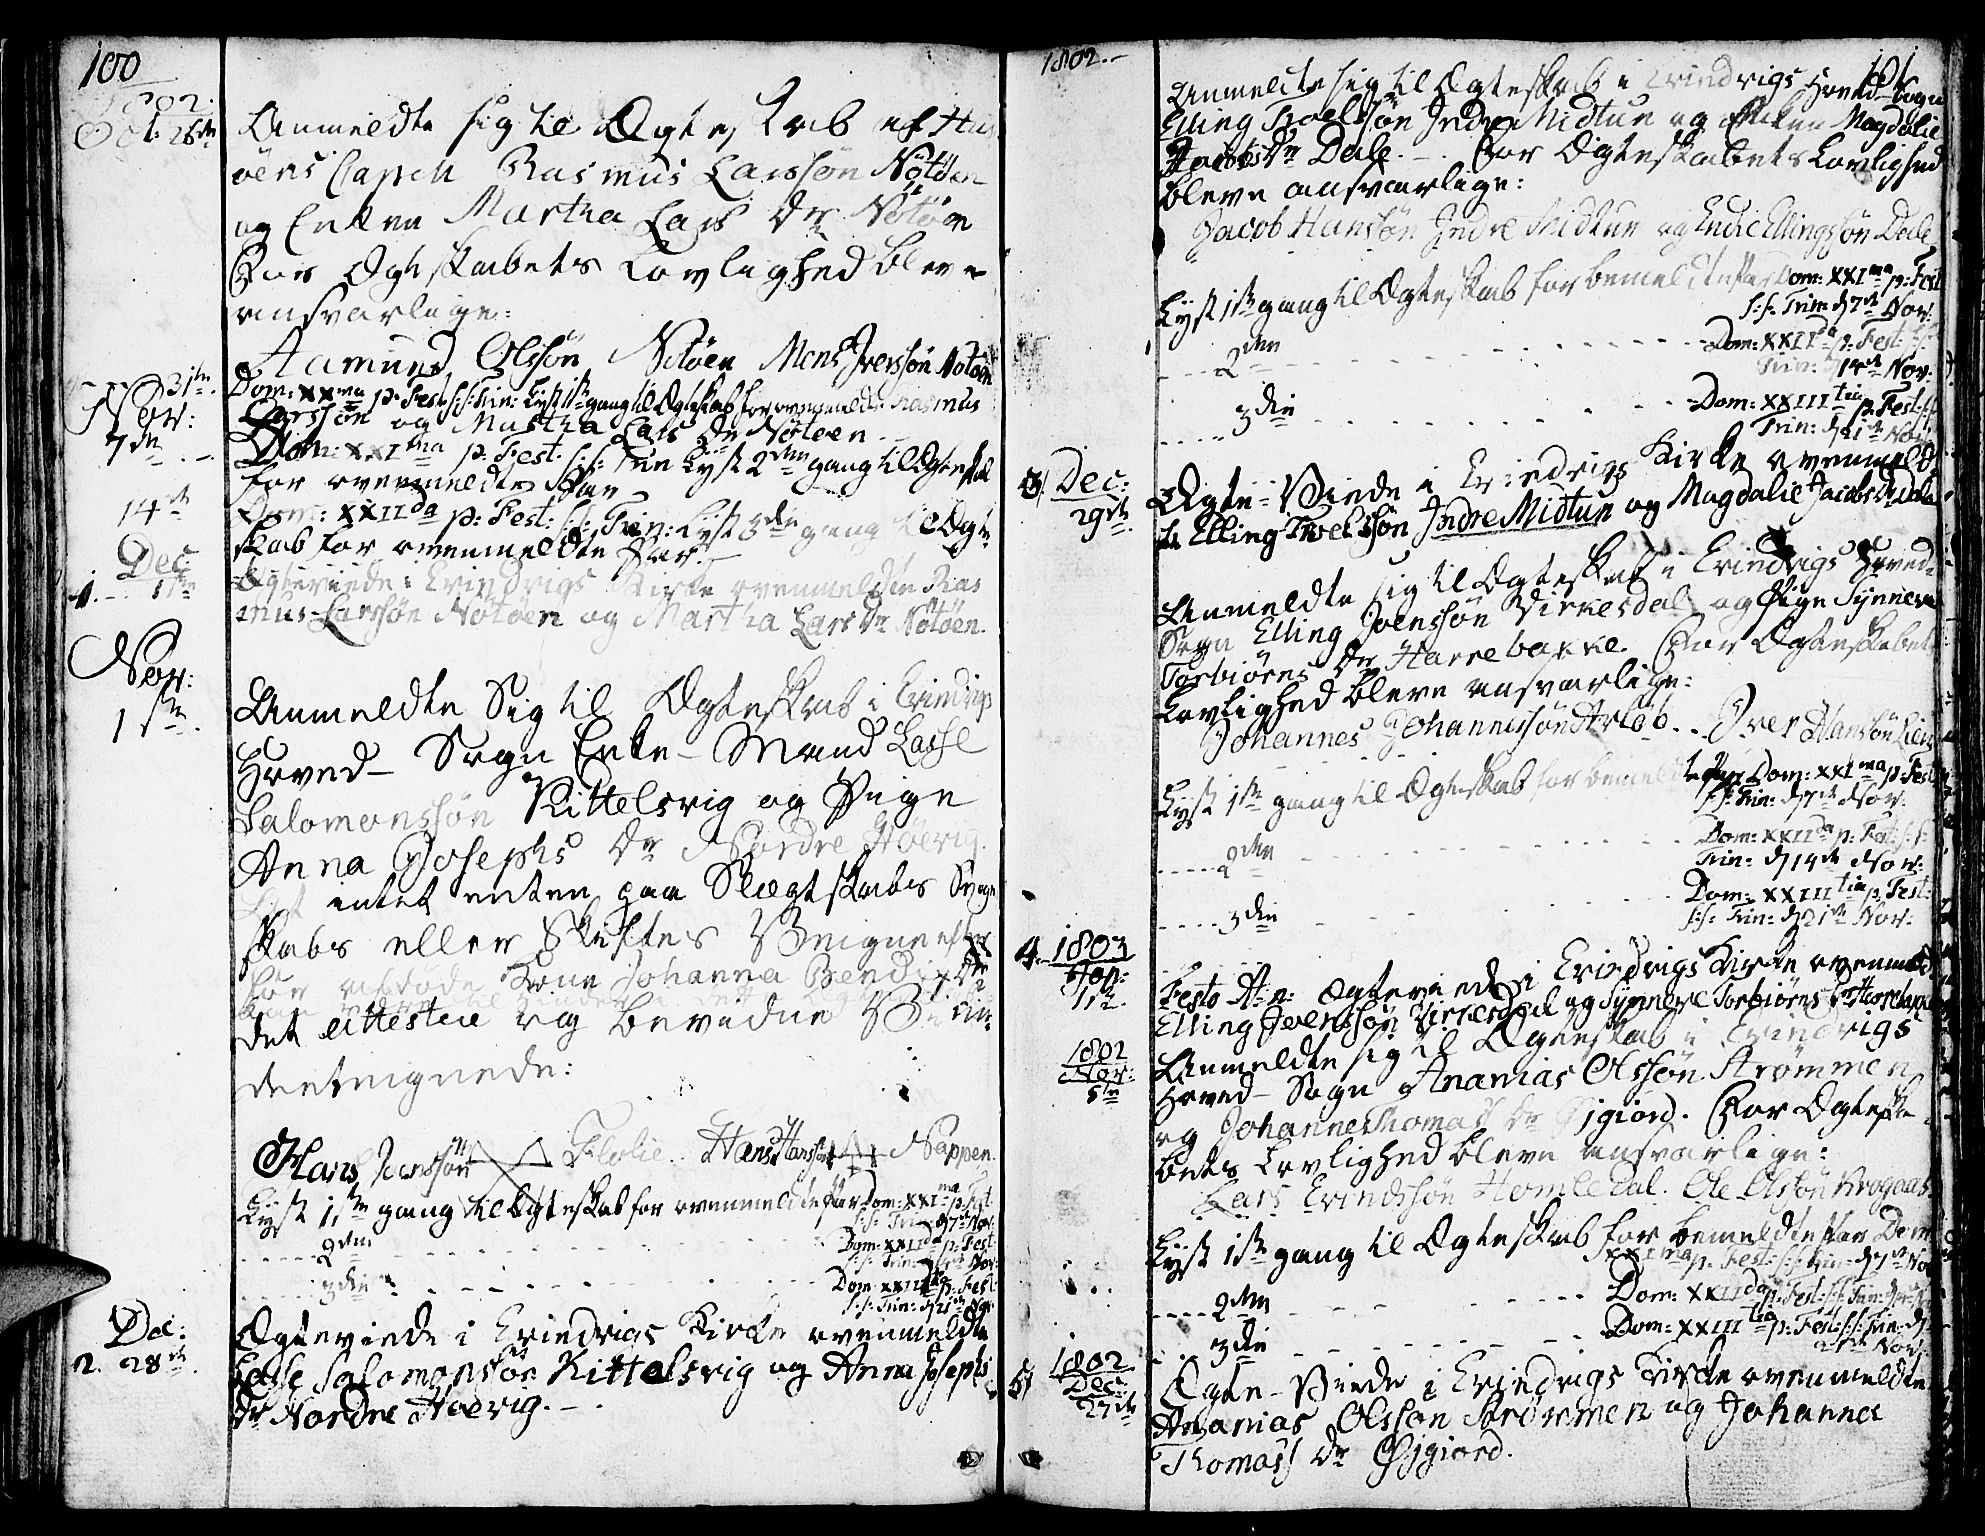 100
1802.
Oct: 26de
Anmeldte sig til Ægteskab af Hus
öens Capell Rasmus Larssön Nötöen
og Enken Martha Lars Dr Nötöen
For Ægteskabets Lovlighed bleve
ansvarlige:
Aamund Olssön Nötöen Mons Iverssön Nötöen
31te
Nov:
Dom: XXma p: Fest: S: S: Trin: Lyst 1ste gang til Ægteskab for ovenmeldte Rasmus
Larssön og Martha Lars Dr Nötöen
7de
Dom: XXIma p: Fest: S: S: Trin Lyst 2den gang til Ægteskab
for ovenmeldte Par
14de
Dom: XXIIda p: Fest: S: S: Trin: Lyst 3die gang til Ægte
skab for ovenmeldte Par.
Dec
1. 1ste
Ægteviede i Evindvigs Kirke ovenmeldte Ras
mus Larssön Nötöen og Martha Lars Dr Nötöen.
Nov:
1ste
Anmeldte Sig til Ægteskab i Evindvigs
Hoved-Sogn Enke-Mand Lasse
Salomonssön Kittelsvig og Pige
Anna Josephs Dr Nordre Höevig.
intet enten paa Slægtskabs Svoger
skabs eller Skiftes Vegne efter
hans afdöde Kone Johanna Bendix Dr
det attestere og bevidne Vi un
dertegnede:
Hans Jenssön Flolie. Hans Hanssön Nappen.
Lyst 1ste gang til Ægteskab for ovenmeldte Par Dom: XXIma p: Fest:
S: S: Trin: d 7de Nov:
2den Dom: XXIIda p: Fest:
S: S: Trin: d 14de Nov:
3die Dom: XXIIItia p: Fest:
S: S: Trin: d 21de Nov:
Dec:
2. 28de
Ægteviede i Evindvigs Kirke ovenmeldte
Lasse Salomonssön Kittelsvig og Anna Josephs
Dr Nordre Höevig.
1802.
101
Anmeldte sig til Ægteskab i Evindvigs Hoved Sogn
Elling Joelssön Indre Midtun og Enken Magdalie
Jacobs Dr Dale. For Ægteskabets Lovlighed
bleve ansvarlige:
Jacob Hanssön Indre Midtun og Endie Ellingssön Dale
Lyst 1ste gang til Ægteskab for bemeldte Par Dom: XXIma p: Fest
S: S: Trin d 7de Nov:
2den Dom: XXIIda p: Fest: S: S:
Trin: d 14de Nov:
3die Dom: XXIIItia p: Fest: S: S:
Trin: d 21de Nov:
3/ Dec:
29de
Ægte-Viede i Evindvigs Kirke ovenmeld
te Elling Joelssön Indre Midtun og Magdalie Jacobs Dr Dale
Anmeldte sig til Ægteskab i Evindvigs Hoved
Sogn Elling Joenssön Virkesdal og Pige Synneve
Torbiörns Dr Harrebakke. For Ægteskabets
Lovlighed bleve ansvarlige:
Johannes Johannessön Arlöb. Iver Hanssön Lien
Lyst 1ste gang til Ægteskab for bemeldte Par Dom: XXIma p: Fest
S: S: Trin: d 7de Nov:
2den Dom: XXIIda p: Fest: S: S:
Trin: d 14de Nov:
3die Dom: XXIIItia p: Fest:
S: S: Trin: d 21de Nov:
4. 1803
Jan:
1ste
Festo A: n: Ægteviede i Evindvigs Kirke ovenmeld
Elling Joenssön Virkesdal og Synneve Torbiörns Dr Harrebakke
1802
Nov:
5te
Anmeldte sig til Ægteskab i Evindvigs
Hoved-Sogn Ananias Olssön Strömmen
og Johanne Thomas Dr Öjgiord. For Ægteska
bets Lovlighed bleve ansvarlige:
Lars Evindssön Homledal. Ole Olssön Krogaas
Lyst 1ste gang til Ægteskab for bemeldte Par Dom
XXIma p: Fest: S: S: Trin: d 7de Nov
2den Dom: XXIIda p: Fest: S: S: Trin:
3die Dom: XXIIItia p: Fest: S: S: Trin: d
21de Nov:
5/ 1802
Dec:
27de
Ægte-Viede i Evindvigs Kirke ovenmeldte
Ananias Olsson Strömmen og Johanne
Thomas Dr Öjgiord.